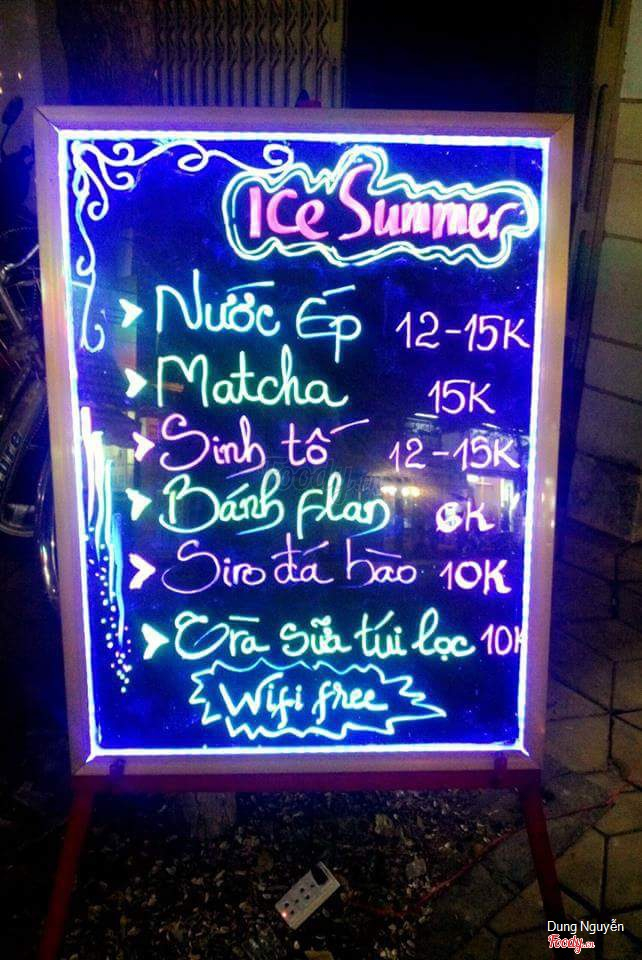 Ice Summer
Nước Ép 12-15K
Matcha 15K
Sinh tố 12-15K
Bánh flan 6K
Siro đá bào 10K
Trà sữa túi lọc 10K
Wifi free
Dung Nguyễn
Foody.vn